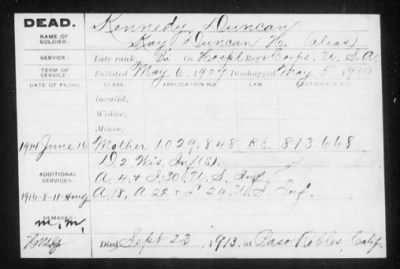 DEAD.
NAME OF SOLDIER:
Kennedy, Duncan
Kay, Duncan H. (alias)
SERVICE:
Late rank, Co. Hospl Regt Corps, U. S. A.
TERM OF SERVICE:
Enlisted May 6, 1907 Discharged May 5, 1910
DATE OF FILING. CLASS. APPLICATION NO. LAW. CERTIFICATE NO.
Invalid,
Widow,
Minor,
1914 June 16 Mother 1.029.848 813.668
D 2 Wis. Inf (S).
ADDITIONAL SERVICES:
A. 4, & I 30 U. S. Inf.
A 18, A 28 & L 29 U. S. Inf.
REMARKS:
m. m.
Died Sept 23, 1913, at Paso Robles, Calif.